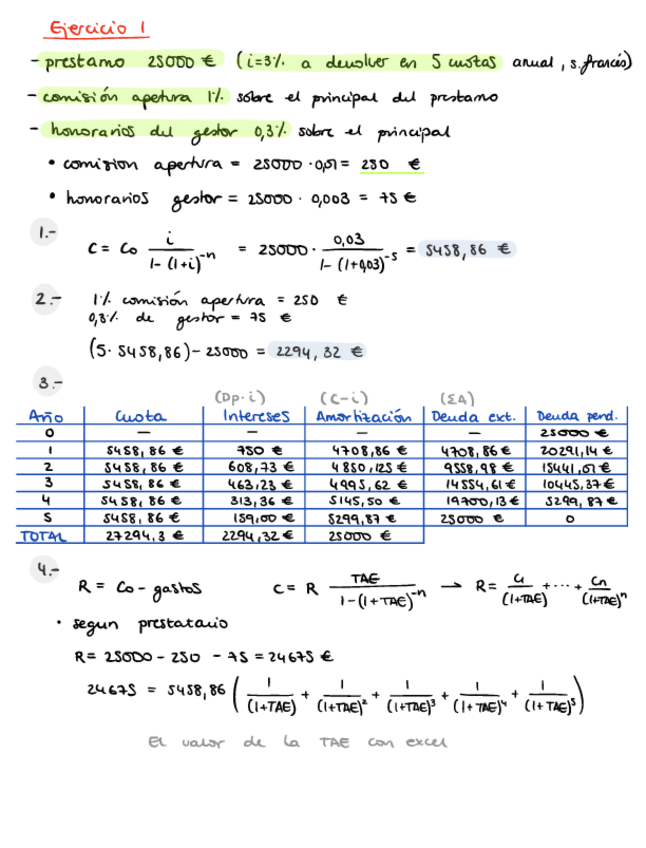 Ejercicio 1
- prestamo 25000 € (i=3% a devolver en 5 cuotas anual, s.francés)
- comisión apetura 1% sobre el principal del prestamo
- honorarios del gestor 0,3% sobre el principal
• comision apertura = 25000 · 0,01 = 250 €
• honorarios gestor = 25000 · 0,003 = 75 €
1.- C = Co i / 1-(1+i)^-n = 25000 · 0,03 / 1-(1+0,03)^-5 = 5458,86 €
2.- 1% comisión apertura = 250 €
0,3% de gestor = 75 €
(5·5458,86) - 25000 = 2294,32 €
3.-
(Dp·i) (C-i) (ΣA)
Año Cuota Intereses Amortización Deuda ext. Deuda pend.
0 — — — — 25000 €
1 5458,86 € 750 € 4708,86 € 4708,86 € 20291,14 €
2 5458,86 € 608,73 € 4850,125 € 9558,98 € 15441,01 €
3 5458,86 € 463,23 € 4995,62 € 14554,61 € 10445,37 €
4 5458,86 € 313,36 € 5145,50 € 19700,13 € 5299,87 €
5 5458,86 € 159,00 € 5299,87 € 25000 € 0
TOTAL 27294,3 € 2294,32 € 25000 €
4.- R = Co - gastos C = R TAE / 1-(1+TAE)^-n → R = C1 / (1+TAE) + ... + Cn / (1+TAE)^n
• segun prestatario
R = 25000 - 250 - 75 = 24675 €
24675 = 5458,86 ( 1 / (1+TAE) + 1 / (1+TAE)² + 1 / (1+TAE)³ + 1 / (1+TAE)⁴ + 1 / (1+TAE)⁵ )
El valor de la TAE con excel